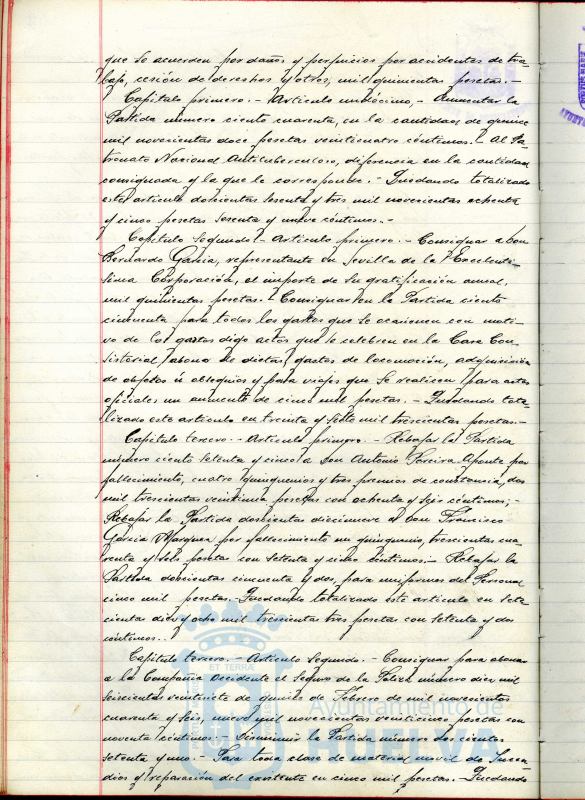 que se acuerden por daños y perjuicios por accidentes de tra-
bajo, cesión de derechos y otros, mil quinientas pesetas.-
Capítulo primero.- Artículo undécimo.- Aumentar la
Partida número ciento cuarenta, en la cantidad de quince
mil novecientas doce pesetas veinticuatro céntimos.- Al Pa-
tronato Nacional Antituberculoso, diferencia en la cantidad
consignada y la que le corresponde.- Quedando totalizado
este artículo doscientas sesenta y tres mil novecientas ochenta
y cinco pesetas sesenta y nueve céntimos.-
Capítulo Segundo.- Artículo primero.- Consignar a Don
Bernardo García, representante en Sevilla de la Excelentí-
sima Corporación, el importe de su gratificación anual,
mil quinientas pesetas.- Consignar en la Partida ciento
cincuenta para todos los gastos que se ocasionen con moti-
vo de los gastos digo actos que se celebren en la Casa Con-
sistorial, abono de dietas, gastos de locomoción, adquisición
de objetos u obsequios y para viajes que se realicen para actos
oficiales un aumento de cinco mil pesetas.- Quedando tota-
lizado este artículo en treinta y siete mil trescientas pesetas.-
Capítulo tercero.- Artículo primero.- Rebajar la Partida
número ciento setenta y cinco a Don Antonio Pereira Aponte por
fallecimiento, cuatro quinquenios y tres premios de constancia, dos
mil trescientas veintiuna pesetas con ochenta y seis céntimos;-
Rebajar la Partida doscientas diecinueve a Don Francisco
García Márquez por fallecimiento un quinquenio, trescientas cua-
renta y seis pesetas con setenta y cinco céntimos.- Rebajar la
Partida doscientas cincuenta y dos, para uniformes del Personal
cinco mil pesetas.- Quedando totalizado este artículo en sete-
cientas diez y ocho mil trescientas tres pesetas con setenta y dos
céntimos.-
Capítulo tercero.- Artículo Segundo.- Consignar para abonar
a la Compañía Occidente el Seguro de la Póliza número diez mil
seiscientas veintisiete de quince de Febrero de mil novecientos
cuarenta y seis, nueve mil novecientas veinticinco pesetas con
noventa céntimos.- Disminuir la Partida número doscientas
setenta y uno.- Para toda clase de material móvil de Incen-
dios y reparación del existente en cinco mil pesetas.- Quedando
ET TERRA
Ayuntamiento de
HUELVA